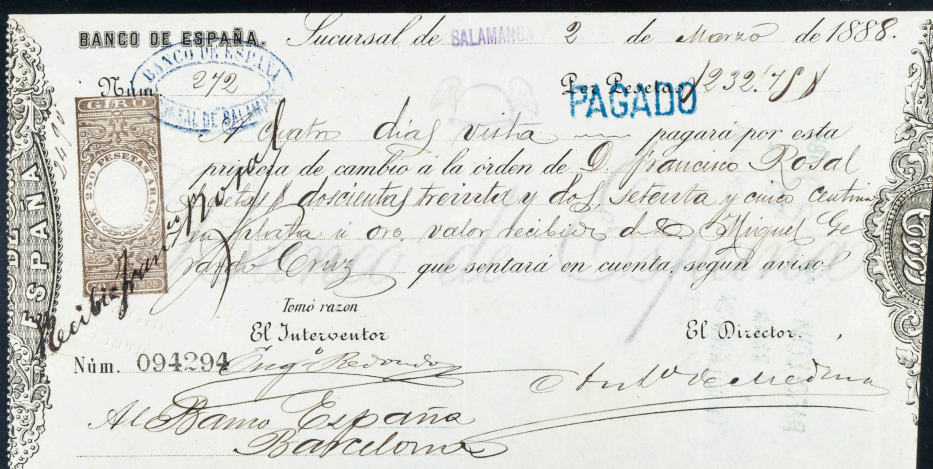 BANCO DE ESPAÑA. Sucursal de SALAMANCA 2 de Marzo de 1888.
Núm. 272 Por Pesetas 232.75
BANCO DE ESPAÑA
SUCURSAL DE SALAMANCA
PAGADO
GIRO
A cuatro días vista pagará por esta
primera de cambio á la orden de D. Francisco Rosal
Pesetas doscientas treinta y dos, setenta y cinco centimos
en plata ú oro, valor recibido de D. Miguel Ge
rardo Cruz que sentará en cuenta, según aviso.
Recibí
Rosal
Tomó razon
El Interventor El Director.
Núm. 094294
Redondo de Medina
Al Banco España
Barcelona
ESPAÑA